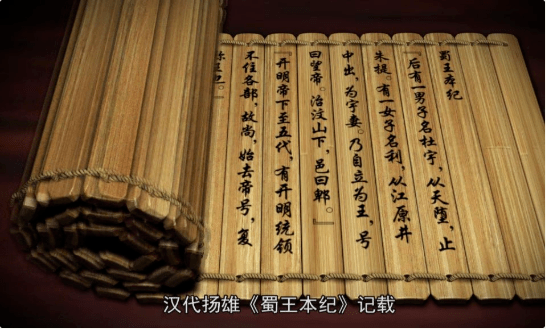 蜀王本纪
『后有一男子名杜宇，从天堕，止
朱提。有一女子名利，从江原井
中出，为宇妻。乃自立为王，号
曰望帝。治汶山下，邑曰郫。』
『开明帝下至五代，有开明统领
不住各部，故尚，始去帝号，复
汉代扬雄《蜀王本纪》记载